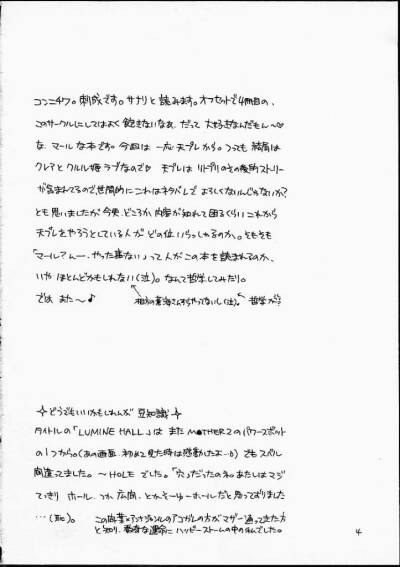 コンニチワ。刺成です。サナリと読みます。オフセットで4冊目の、
このサークルにしてはよく飽きないなぁ、だって大好きなんだもん〜♡
な、マールな本です。今回は一応天プレから。つっても結局は
クレアとクルル様ラブなので♡ 天プレはリトプリのその後的ストリー
が含まれてるので世間的にこれはネタバレでよろしくないんじゃないか?
とも思いましたが今更、どころか内容が知れて困るくらいこれから
天プレをやろうとしている人がどの位いらっしゃるのか。そもそも
「マール?んー、やった事ない」って人がこの本を読まれてるのか、
いやほとんどかもしれない(泣)。なんて哲学してみだり。
では また〜♪
相方の蒼海さんすらやってないし(泣)。
哲学か?
✧どうでもいいかもしれんが 豆知識✧
タイトルの「LUMINE HALL」は またM●THER2のパワースポット
の1つから。(あの画面、初めて見た時は感動したよ…) でもスペル
間違ってました。〜HOLEでした。「穴」だったのネ。あたしはマジ
てっきり ホール、つか広間、とか、そーゆーホールだと思っておりました
…(恥)。
この両葉×アンナジャンルのアコガレの方がマザー通ってきた方
と知り、数奇な運命にハッピーストームの中の私でした。
4